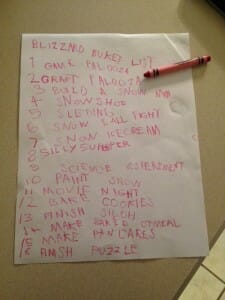 BLIZZARD BUKET LIST
1 GAME PALOOZA
2 CRAFT PALOOZA
3 BUILD A SNOW MAN
4 SNOW SHOE
5 SLEDDING
6 SNOW BALL FIGHT
7 SNOW ICECREAM
8 SILLY SUPPER
9 SCIENCE EXPERIMENT
10 PAINT SNOW
11 MOVIE NIGHT
12 BAKE COOKIES
13 FINISH
14 MAKE BAKED OATMEAL
15 MAKE PANCAKES
16 FINISH PUZZLE